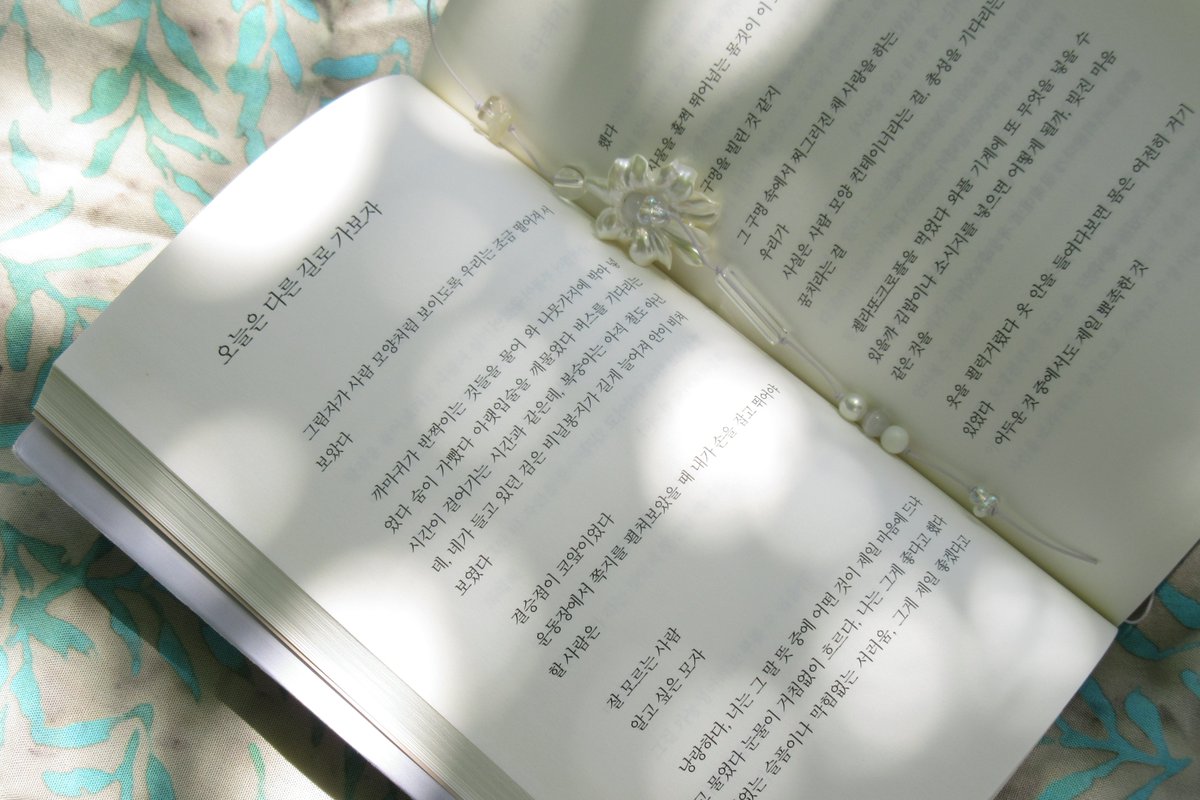 오늘은 다른 길로 가보자
그림자가 사람 모양처럼 보이도록 우리는 조금 떨어져 서
보았다
까마귀가 반짝이는 것들을 물어 와 나뭇가지에 박아 넣
었다 숨이 가빴다 아랫입술을 깨물었다 버스를 기다리는
시간이 걸어가는 시간과 같은데, 복숭아는 아직 철도 아닌
데, 네가 들고 있던 검은 비닐봉지가 길게 늘어져 안이 비쳐
보였다
결승점이 코앞이었다
운동장에서 쪽지를 펼쳐보았을 때 내가 손을 잡고 뛰어야
할 사람은
잘 모르는 사람
알고 싶은 모자
낭랑하다, 나는 그 말 뜻 중에 어떤 것이 제일 마음에 드냐
고 물었다 눈물이 거침없이 흐르다, 나는 그게 좋다고 했다
없는 슬픔이나 막힘없는 서러움, 그게 제일 좋겠다고
했다
사물을 훌쩍 뛰어넘는 몸짓이 이
구멍을 빌린 것 같지
그 구멍 속에서 찌그러진 채 사랑을 하는
우리가
사실은 사람 모양 컨테이너라는 걸, 종성을 기다리는
꿈치라는 걸
젤라또크로플을 먹었다 와플 기계에 또 무엇을 넣을 수
있을까 김밥이나 소시지를 넣으면 어떻게 될까, 빚진 마음
같은 것을
옷을 펄럭거렸다 옷 안을 들여다보면 몸은 여전히 거기
있었다
어두운 것 중에서도 제일 뾰족한 것